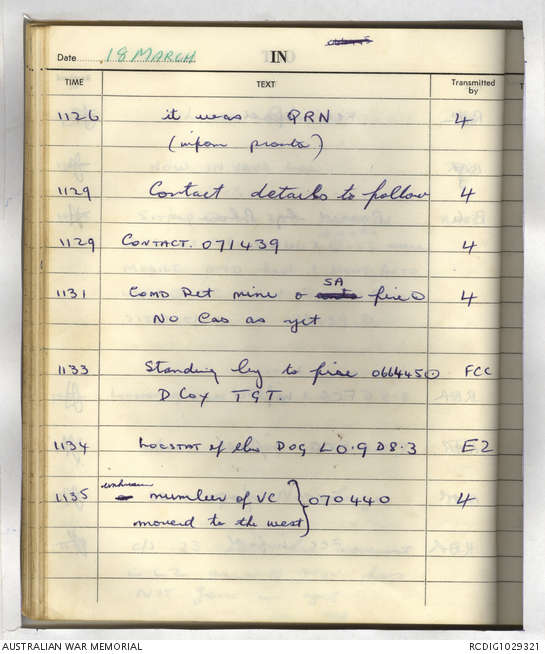 Date 18 MARCH IN
TIME TEXT Transmitted by
1126 it was QRN 4
(inform pronto)
1129 Contact details to follow 4
1129 CONTACT. 071439 4
1131 COMD Det mine & SA fire 4
NO Cas as yet
1133 Standing by to fire 066445 FCC
D Coy TGT.
1134 LOCSTAT of this DOG L0.9 D8.3 E2
1135 unknown number of VC } 070440 4
moverd to the west
AUSTRALIAN WAR MEMORIAL RCDIG1029321